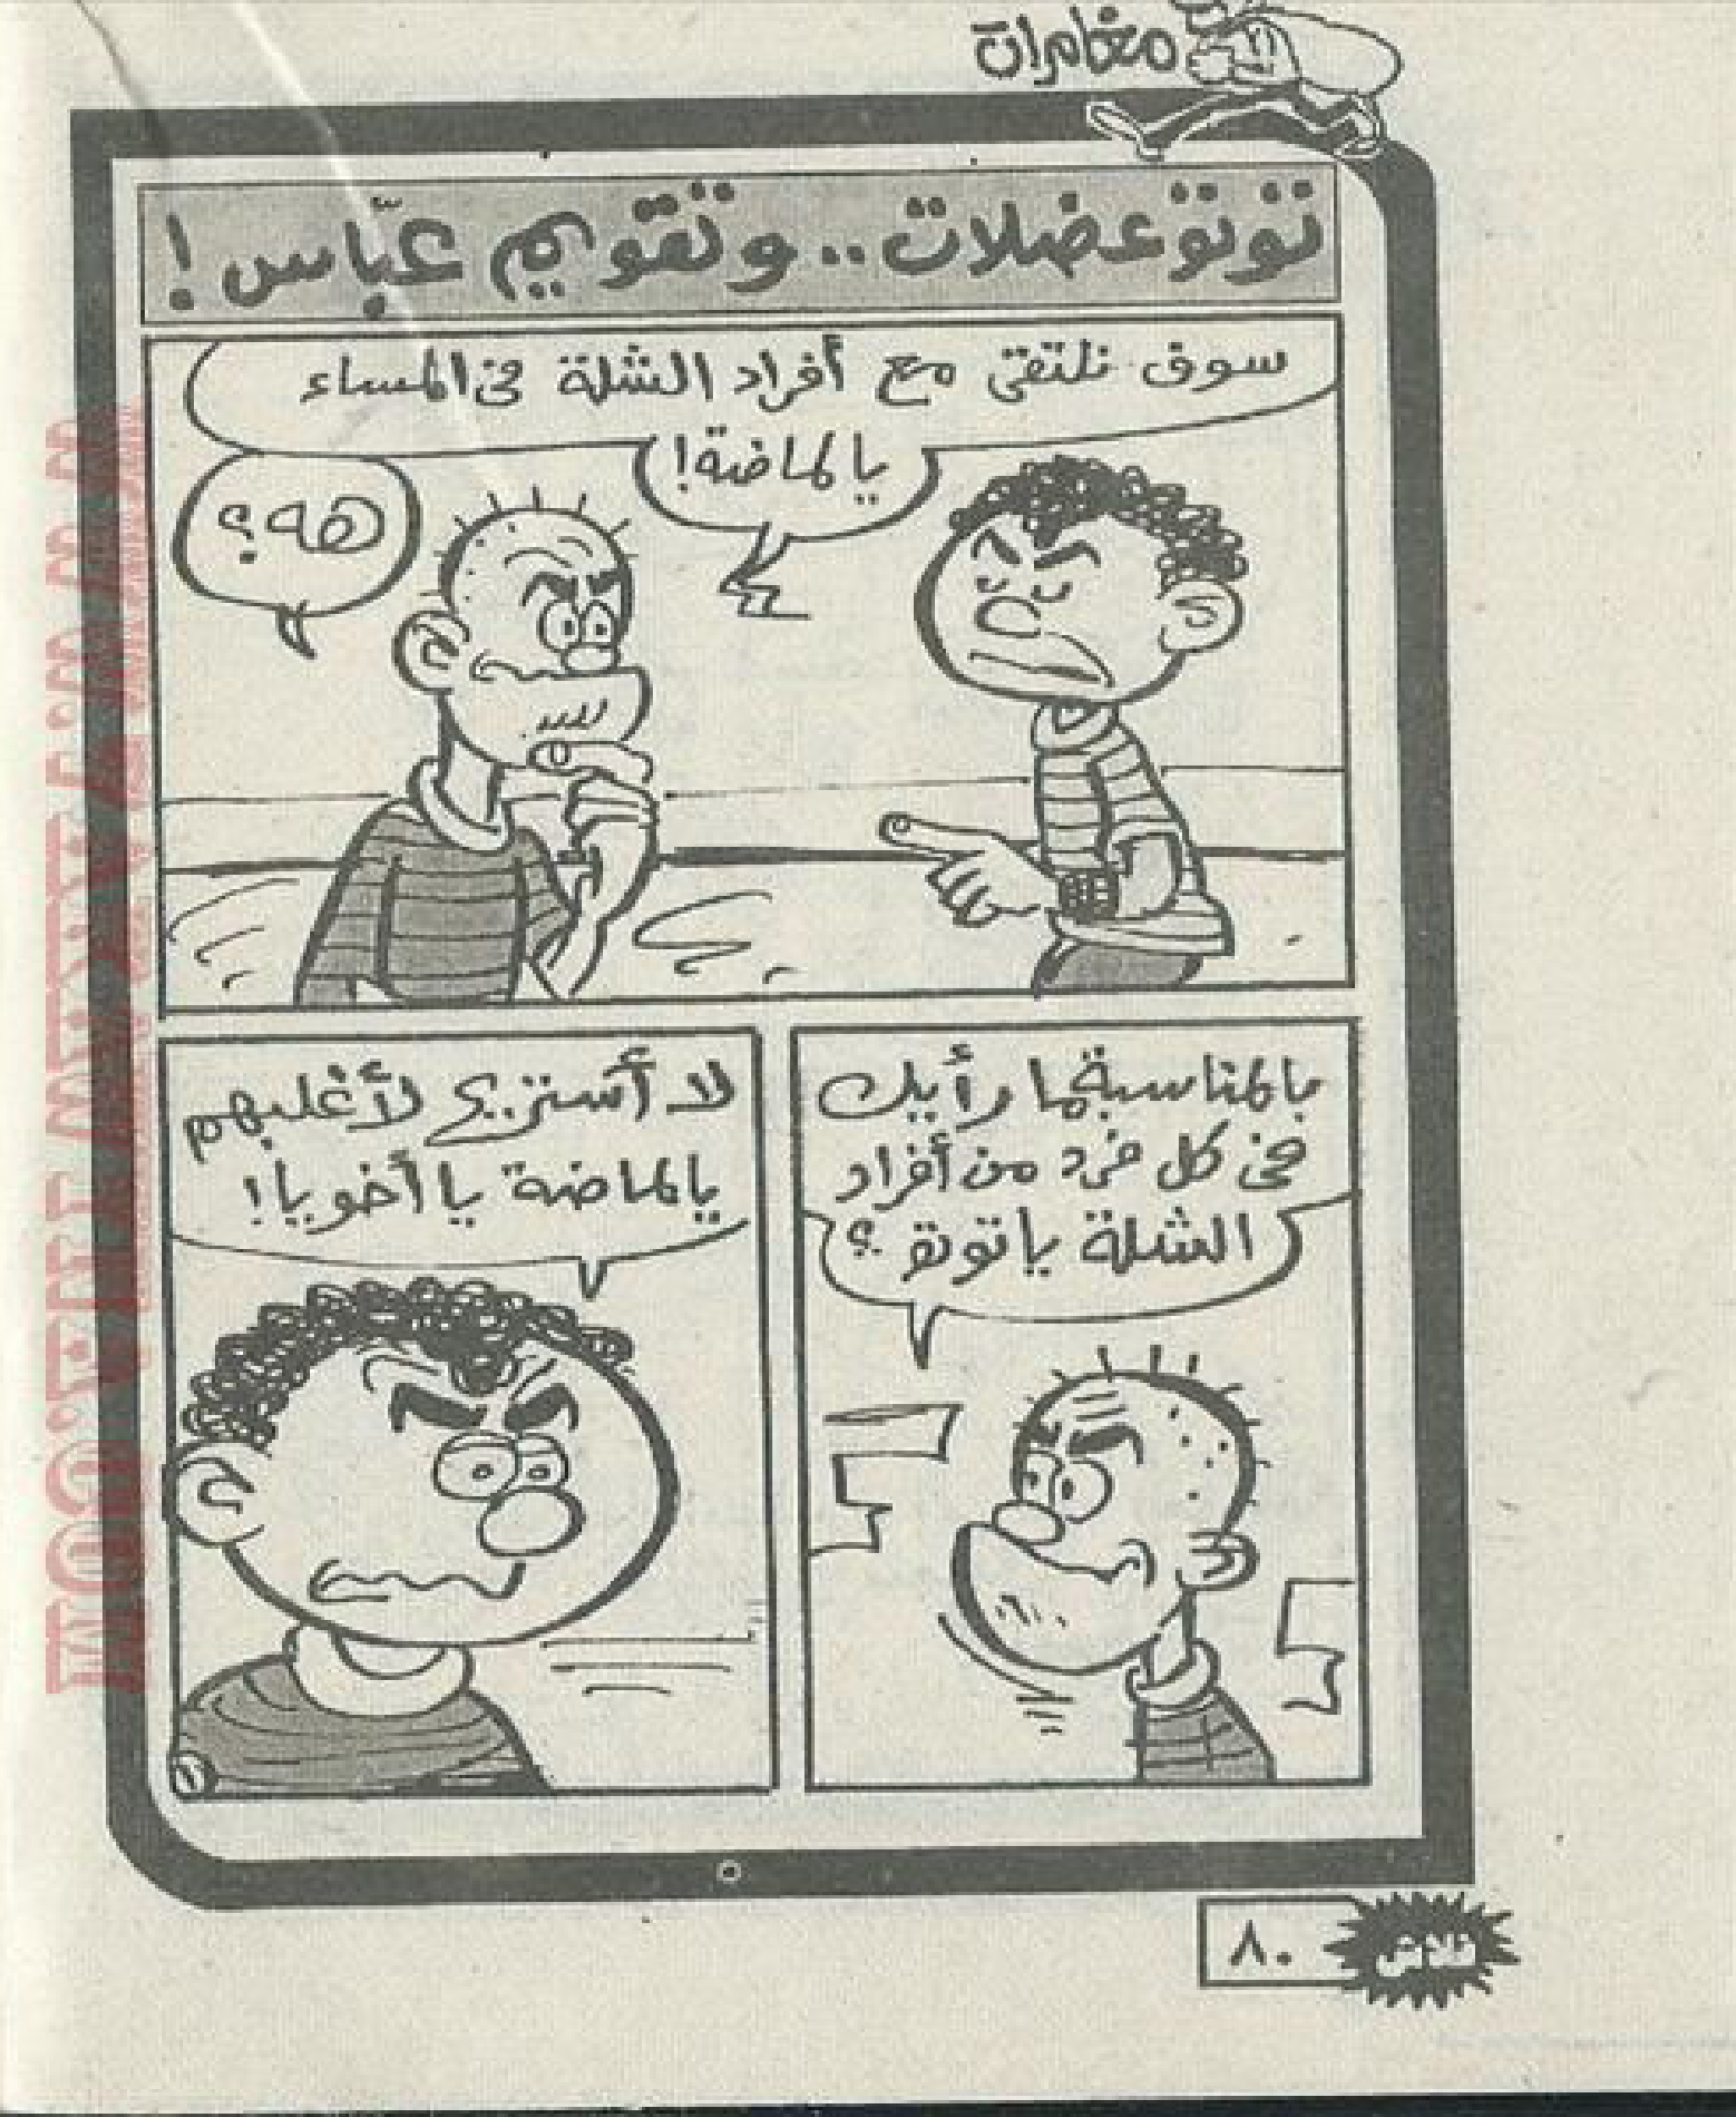 مغامرات
توتو عضلات.. وتقويم عبّاس!
سوف نلتقى مع أفراد الشلة فى المساء
يا لماضة!
هه؟
بالمناسبة ما رأيك
فى كل فرد من أفراد
الشلة يا توتو؟
لا أستريح لأغلبهم
يا لماضة يا أخويا!
فلاش
٨٠